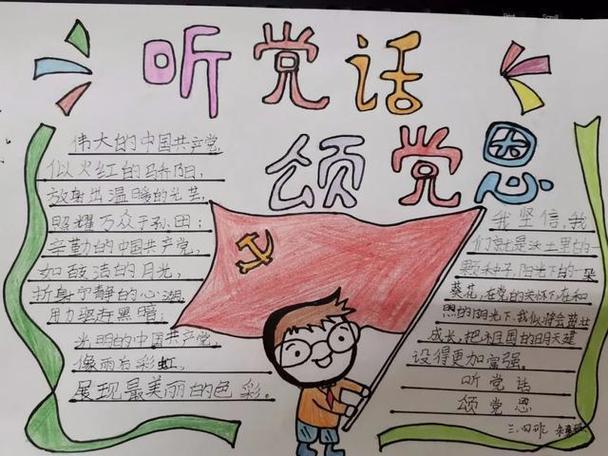 听党话
颂党恩
伟大的中国共产党,
似火红的骄阳,
放射出温暖的光芒,
照耀万众于孙田;
辛勤的中国共产党,
如皎洁的月光,
折身宁静的心湖
用力驱弃黑暗;
光明的中国共产党,
像雨后彩虹,
展现最美丽的色彩。
我坚信,我
们就是沃土里的一
颗种子,阳光下的一朵
葵花,在党的关怀下,在和
煦的阳光下,我们将会茁壮
成长,把祖国的明天建
设得更加富强。
听党话
颂党恩
三.四班